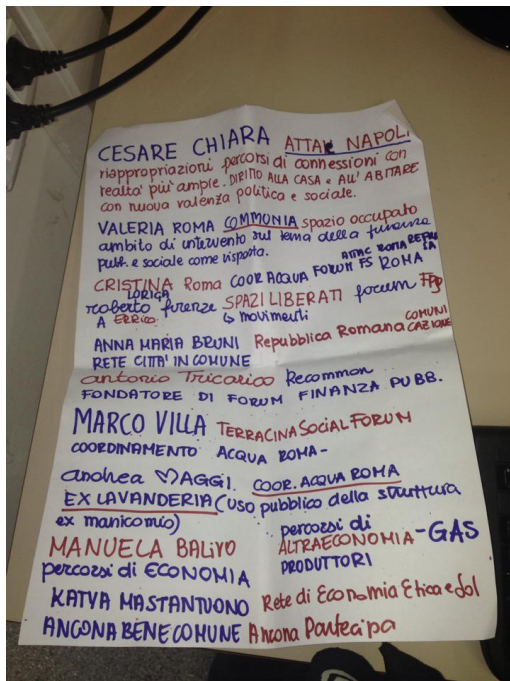 CESARE CHIARA ATTAC NAPOLI
riappropriazioni percorsi di connessioni con
realtà più ampie. DIRITTO ALLA CASA e ALL' ABITARE
con nuova valenza politica e sociale.
VALERIA ROMA COMMONIA spazio occupato
ambito di intervento sul tema della finanza
pubb. e sociale come risposta.
CRISTINA Roma COOR ACQUA FORUM FS ROMA
ATTAC ROMA
LORIGA
roberto firenze SPAZI LIBERATI forum
A ERRICO. ↳ movimenti
ANNA MARIA BRUNI Repubblica Romana COMUNI
CAZIONE
RETE CITTA' IN COMUNE
antonio Tricarico Recommon
FONDATORE DI FORUM FINANZA PUBB.
MARCO VILLA TERRACINA SOCIAL FORUM
COORDINAMENTO ACQUA ROMA-
andrea MAGGI. COOR. ACQUA ROMA
EX LAVANDERIA (uso pubblico della struttura
ex manicomio)
percorsi di
MANUELA BALIVO ALTRAECONOMIA - GAS
percorsi di ECONOMIA PRODUTTORI
KATYA MASTANTUONO Rete di Economia Etica e Sol
ANCONA BENE COMUNE Ancona Partecipa